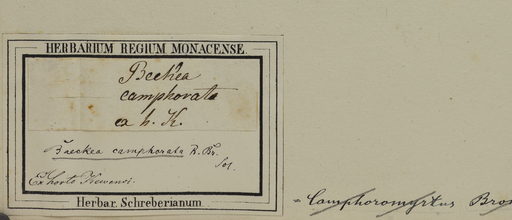 HERBARIUM REGIUM MONACENSE.
Beckea
camphorata
ex h. K.
Baeckea camphorata R. Br.
Ex horto Kewensi.
Herbar. Schreberianum
= Camphoromyrtus Bron